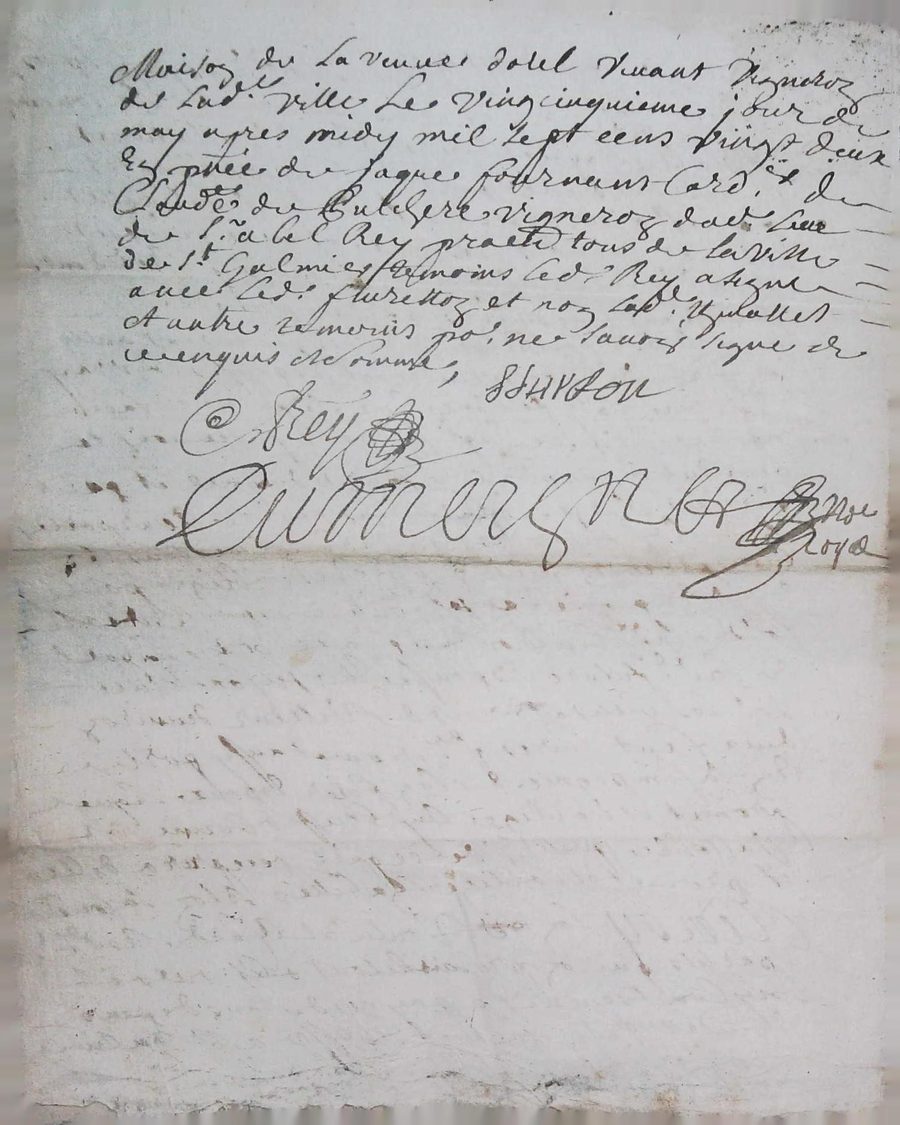 Maison de La veuve dorel vivant Vigneron
de Lad.te ville Le vingcinquieme jour de
may apres midy mil sept cens vingt deux
En pñce de Jaque fournant Cord.er de
Claude de vigneron dud. Lieu
de S.r abel Rey pratn tous de la ville
de S.t Galmier temoins Led. Rey a signe
avec Led. fleretton et non Lad.
et autre temoins po.r ne savoir signe de
ce enquis et somme,
Rey
Not.re
Royal